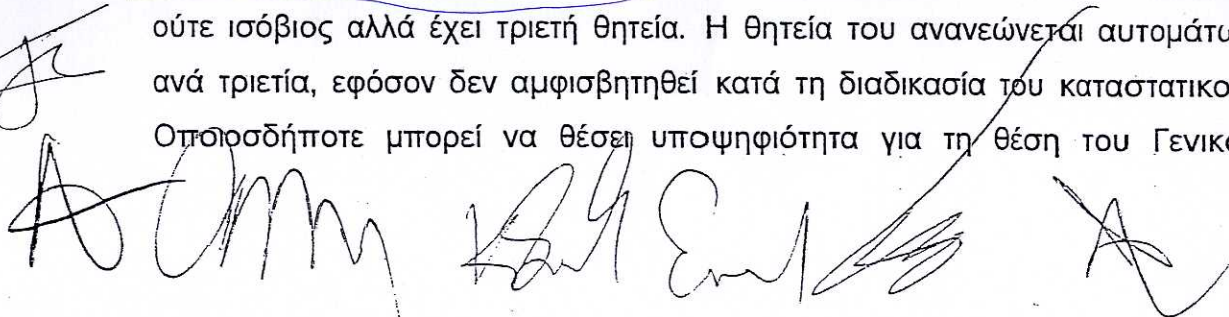 ούτε ισόβιος αλλά έχει τριετή θητεία. Η θητεία του ανανεώνεται αυτομάτω
ανά τριετία, εφόσον δεν αμφισβητηθεί κατά τη διαδικασία του καταστατικο
Οποιοσδήποτε μπορεί να θέσει υποψηφιότητα για τη θέση του Γενικο